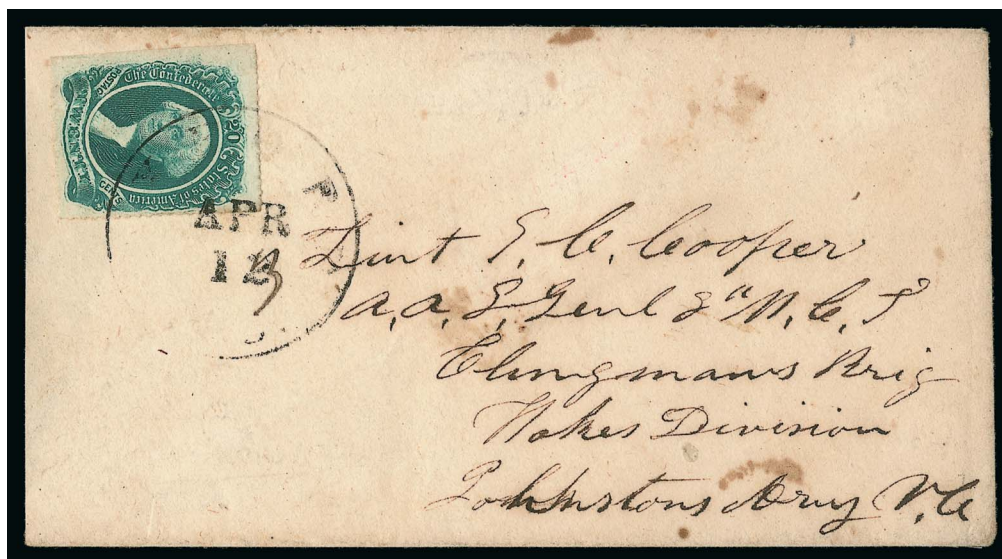 The Confederate States of America
POSTAGE
20
CENTS
APR
12
Lieut E. C. Cooper
a, a, E, Genl 8" N, C, T
Clingmans Brig
Hokes Division
Johnstons Army N. C